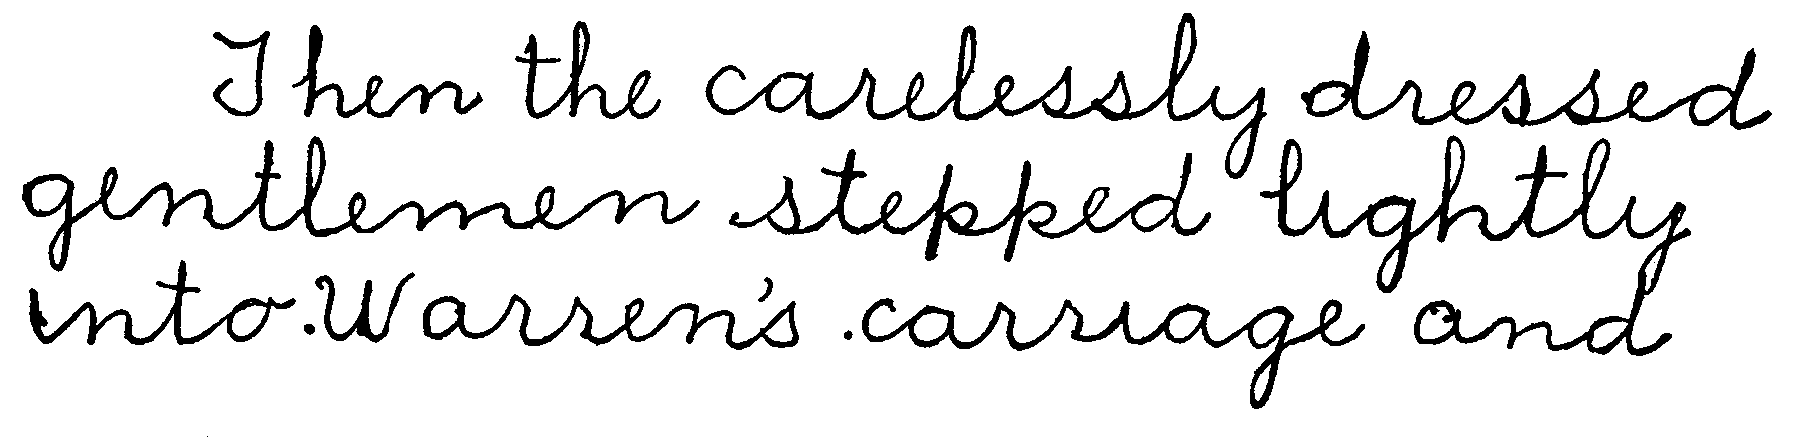 Then the carelessly dressed
gentlemen stepped lightly
into Warren's carriage and